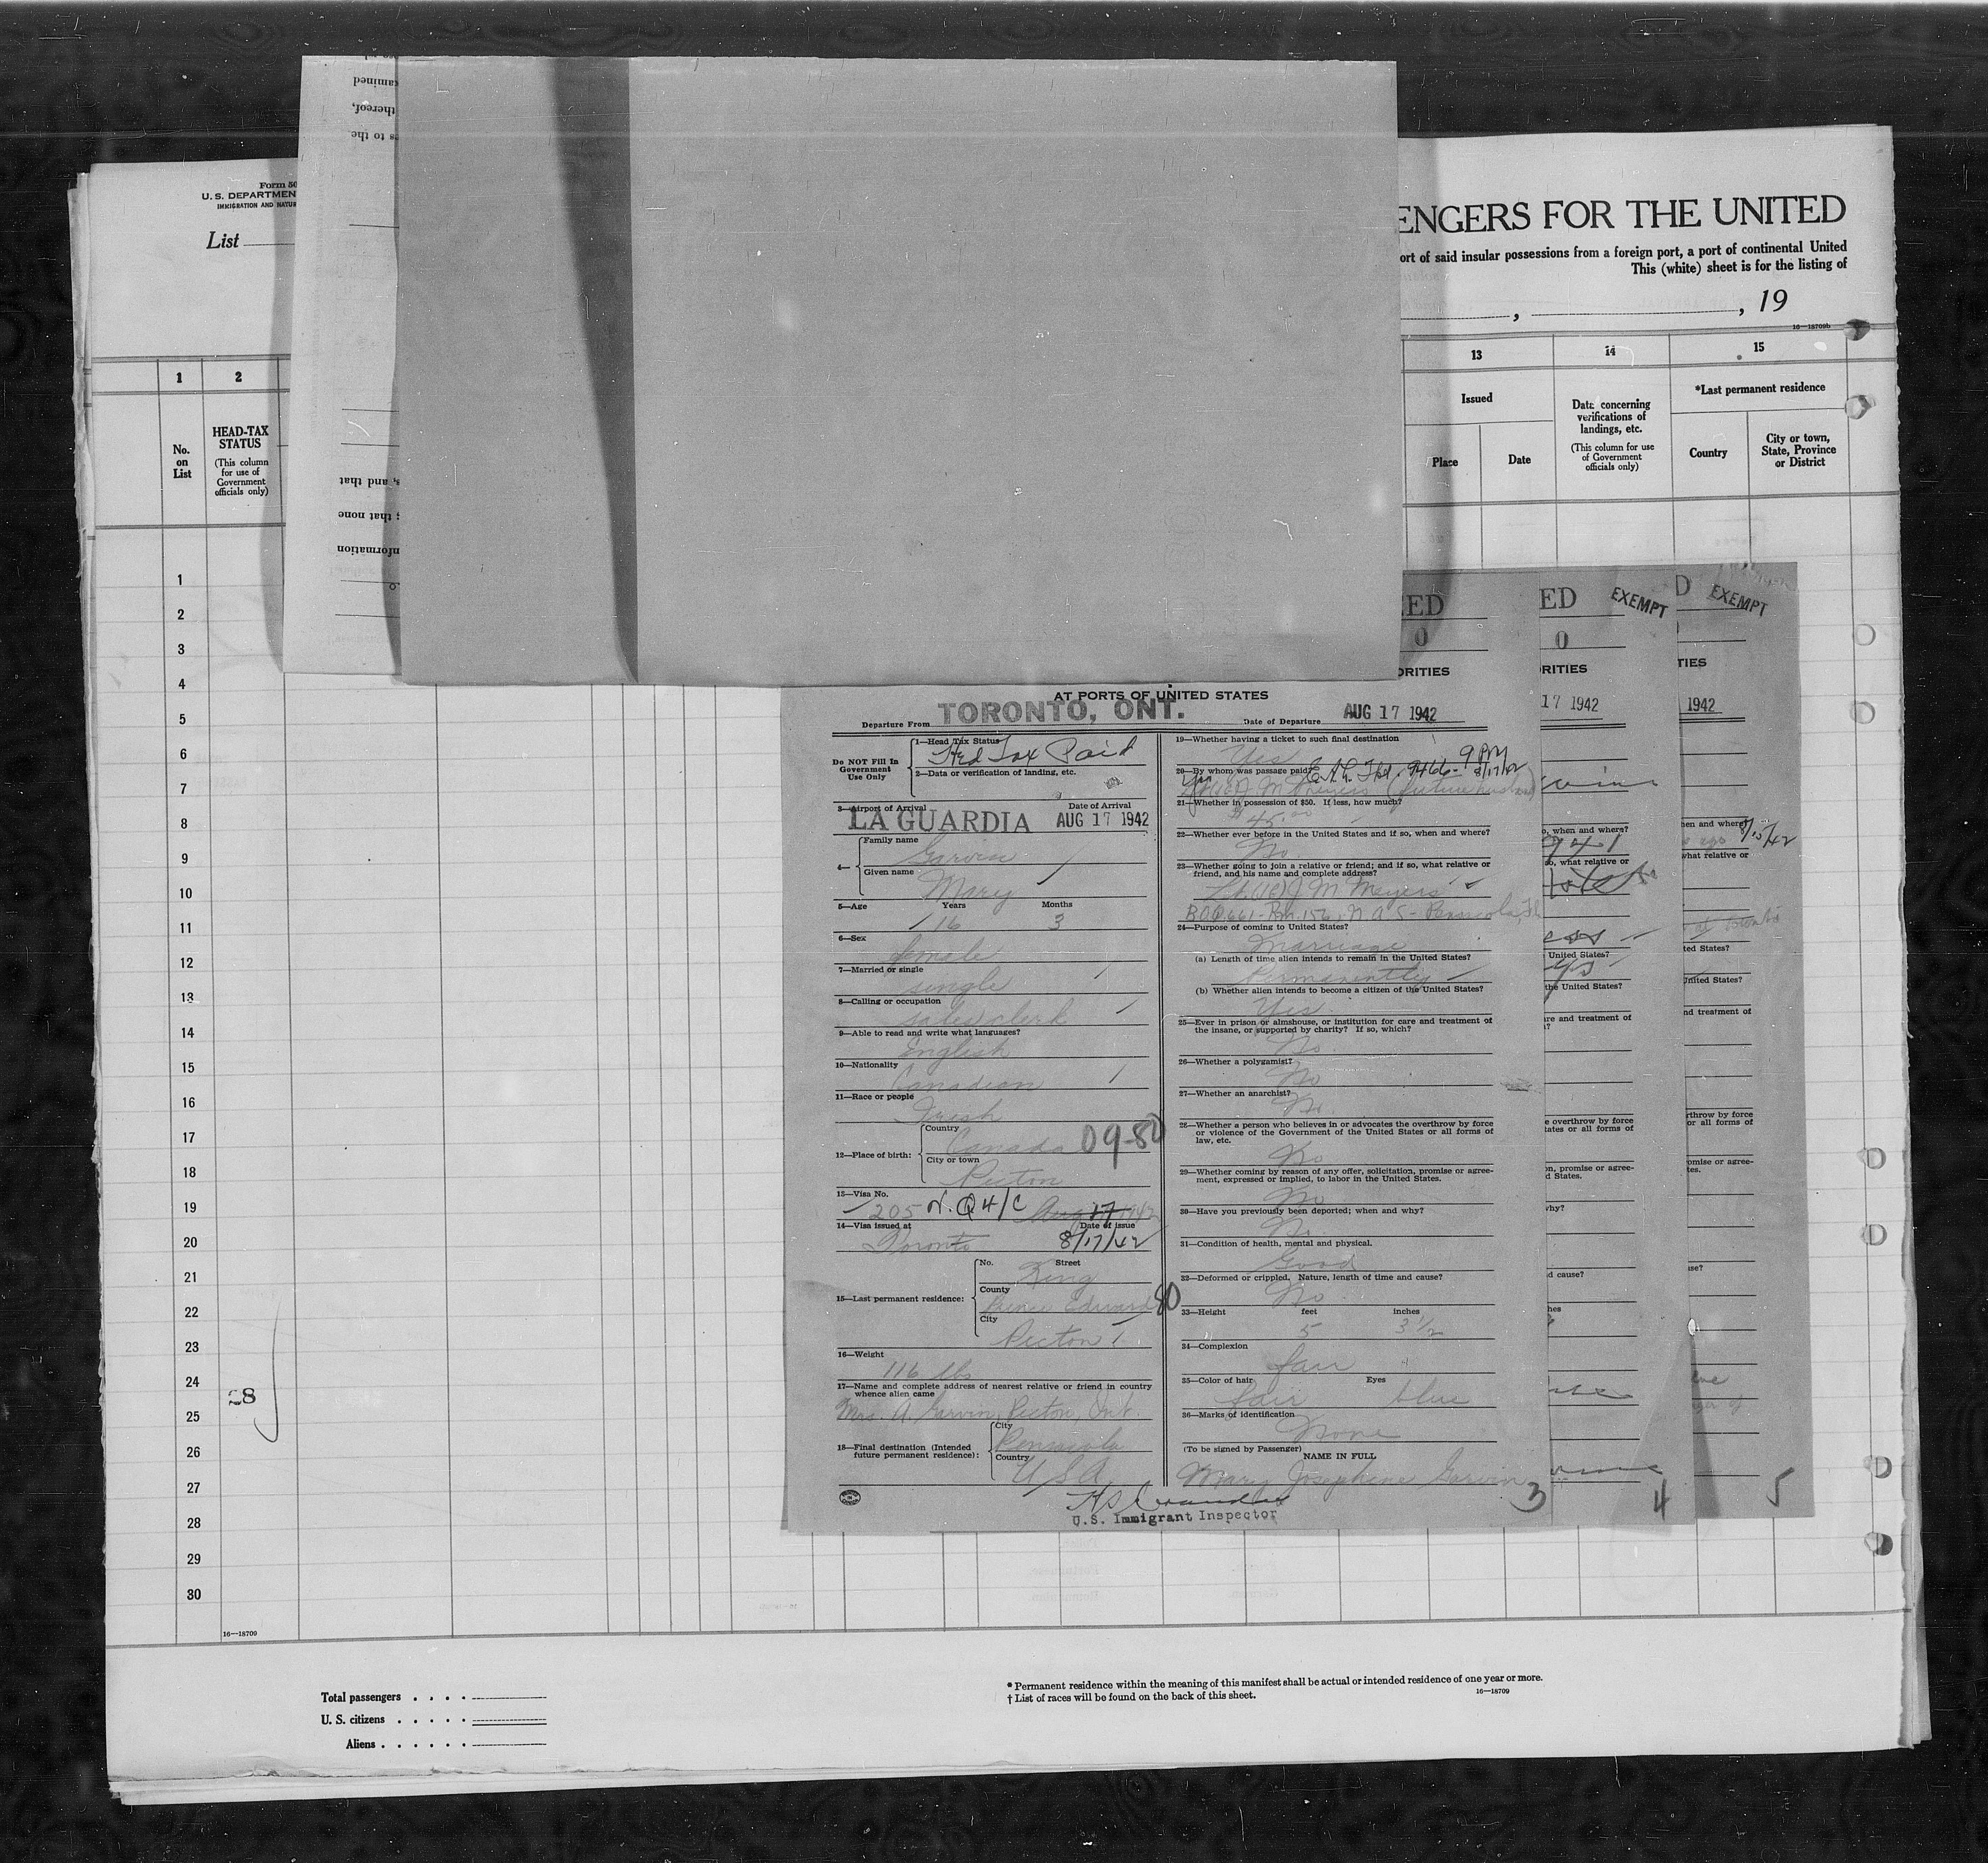 Form 50
U. S. DEPARTMEN
IMMIGRATION AND NATUR
List
ENGERS FOR THE UNITED
ort of said insular possessions from a foreign port, a port of continental United
This (white) sheet is for the listing of
, , 19
16—18709b
amined
thereof,
s to the
s, and that
; that none
nformation
1
2
No. on List
HEAD-TAX STATUS
(This column for use of Government officials only)
13
14
15
Issued
Place
Date
Data concerning verifications of landings, etc.
(This column for use of Government officials only)
*Last permanent residence
Country
City or town, State, Province or District
1
2
3
4
5
6
7
8
9
10
11
12
13
14
15
16
17
18
19
20
21
22
23
24
25
26
27
28
29
30
28
16—18709
ED
0
ORITIES
AT PORTS OF UNITED STATES
Departure From TORONTO, ONT.
Date of Departure AUG 17 1942
Do NOT Fill In Government Use Only
1—Head Tax Status Hed Tax Paid
2—Data or verification of landing, etc.
3—Airport of Arrival LA GUARDIA
Date of Arrival AUG 17 1942
4— Family name Garvin
Given name Mary
5—Age Years 16 Months 3
6—Sex female
7—Married or single single
8—Calling or occupation sales clerk
9—Able to read and write what languages? English
10—Nationality Canadian
11—Race or people Irish
12—Place of birth: Country Canada 09-80
City or town Picton
13—Visa No. 205 N.Q 4/C Aug 17 1942
14—Visa issued at Toronto Date of issue 8/17/42
15—Last permanent residence: No. Street King
County Prince Edward 80
City Picton
16—Weight 116 lbs
17—Name and complete address of nearest relative or friend in country whence alien came
Mrs. A. Garvin, Picton, Ont.
18—Final destination (Intended future permanent residence): City Pensacola
Country U S A
19—Whether having a ticket to such final destination
Yes
20—By whom was passage paid? E.A.L. Tkt. 9466- 9 PM 8/17/42
J M Meyers (future husband)
21—Whether in possession of $50. If less, how much?
$45.00
22—Whether ever before in the United States and if so, when and where?
No
23—Whether going to join a relative or friend; and if so, what relative or friend, and his name and complete address?
J M Meyers
B.O.Q. 661-Rm. 156, N A S - Pensacola, Fl
24—Purpose of coming to United States?
Marriage
(a) Length of time alien intends to remain in the United States?
Permanently
(b) Whether alien intends to become a citizen of the United States?
Yes
25—Ever in prison or almshouse, or institution for care and treatment of the insane, or supported by charity? If so, which?
No
26—Whether a polygamist?
No
27—Whether an anarchist?
No
28—Whether a person who believes in or advocates the overthrow by force or violence of the Government of the United States or all forms of law, etc.
No
29—Whether coming by reason of any offer, solicitation, promise or agreement, expressed or implied, to labor in the United States.
No
30—Have you previously been deported; when and why?
No
31—Condition of health, mental and physical.
Good
32—Deformed or crippled. Nature, length of time and cause?
No
33—Height feet 5 inches 3 1/2
34—Complexion
fair
35—Color of hair fair Eyes blue
36—Marks of identification
None
(To be signed by Passenger) NAME IN FULL
Mary Josephine Garvin
U.S. Immigrant Inspector
3
ED EXEMPT
0
RITIES
17 1942
o, when and where?
1941
so, what relative or
United States?
the United States?
are and treatment of
e overthrow by force
tates or all forms of
on, promise or agree-
d States.
why?
d cause?
hes
4
D EXEMPT
TIES
1942
hen and where?
8/15/42
what relative or
at Toronto
ted States?
United States?
nd treatment of
rthrow by force
or all forms of
omise or agree-
tes.
se?
5
Total passengers
U. S. citizens
Aliens
* Permanent residence within the meaning of this manifest shall be actual or intended residence of one year or more.
† List of races will be found on the back of this sheet.
16—18709